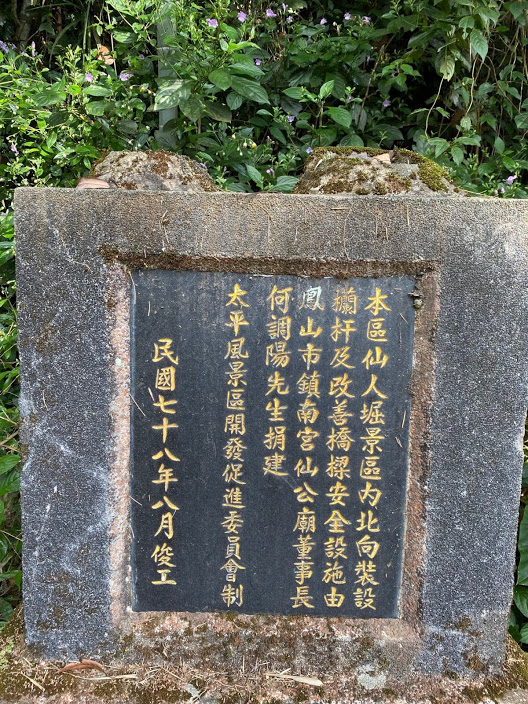 本區仙人堀景區內北向裝設
攔杆及改善橋樑安全設施由
鳳山市鎮南宮仙公廟董事長
何調陽先生捐建
太平風景區開發促進委員會制
民國七十八年八月俊工